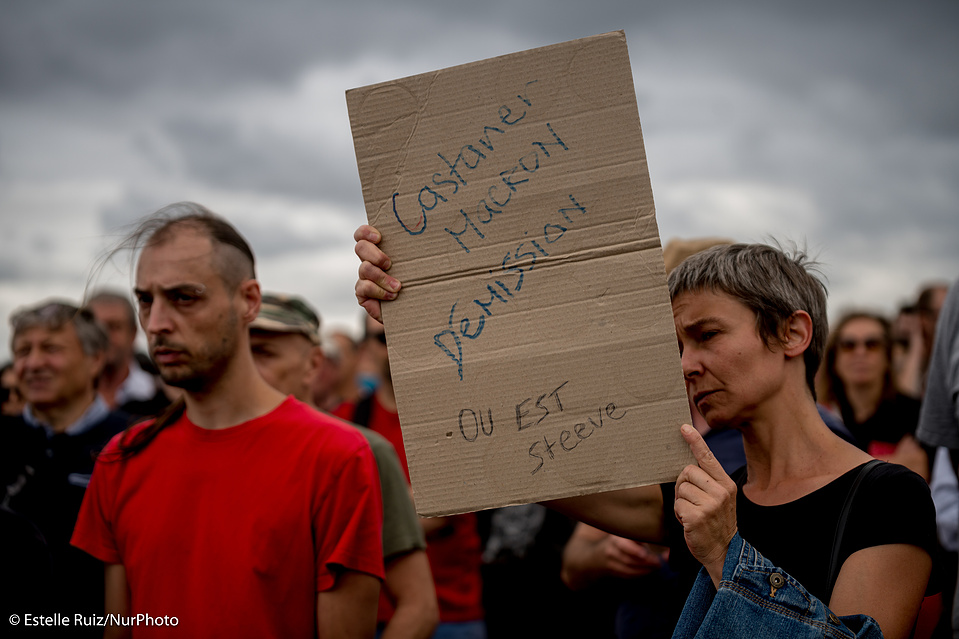 Castaner
MACRON
DÉMISSION
OU EST
Steeve
© Estelle Ruiz/NurPhoto